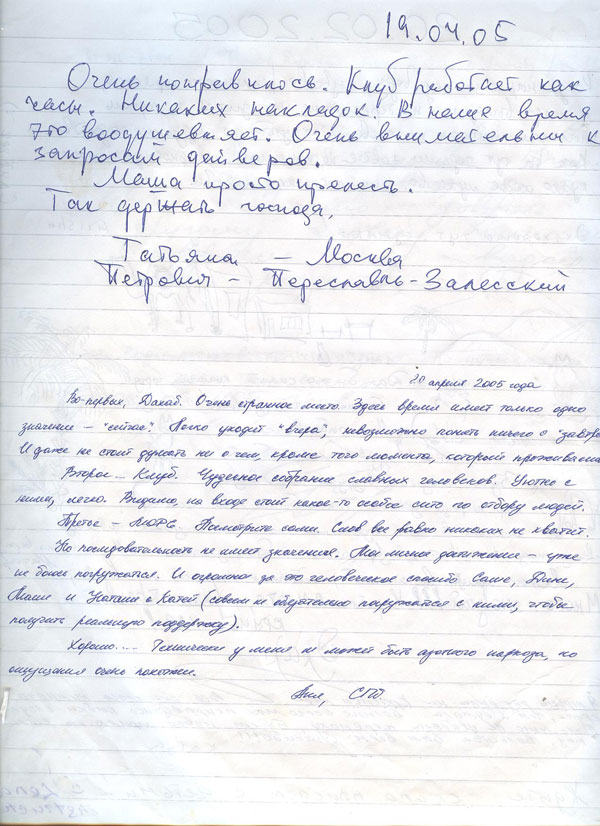 19.04.05
Очень понравилось. Клуб работает как
часы. Никаких накладок. В наше время
это воодушевляет. Очень внимательны к
запросам дайверов.
Маша просто прелесть.
Так держать господа.
Татьяна – Москва
Петрович – Переславль-Залесский
20 апреля 2005 года
Во-первых, Дахаб. Очень странное место. Здесь время имеет только одно
значение – "сейчас". Легко уходит "вчера", невозможно понять ничего о "завтра"
И даже не стоит думать ни о чем, кроме того момента, который проживаешь
Второе... Клуб. Чудесное собрание славных человеков. Уютно с
ними, легко. Видимо, на входе стоит какое-то особое сито по отбору людей.
Третье – МОРЕ. Посмотрите сами. Слов все равно никаких не хватит.
Но последовательность не имеет значения. Мое личное достижение – уже
не боюсь погружаться. И огромное за это человеческое спасибо Саше, Диме,
Маше и Наташе с Катей (совсем не обязательно погружаться с ними, чтобы
получить реальную поддержку).
Хорошо.... Технически у меня не может быть азотного наркоза, но
ощущения очень похожи.
СПб